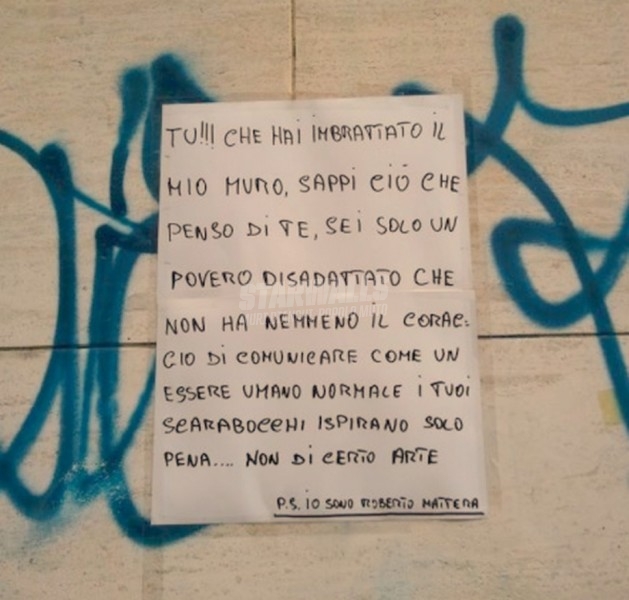 TU!!! CHE HAI IMBRATTATO IL
MIO MURO, SAPPI CIÓ CHE
PENSO DI TE, SEI SOLO UN
POVERO DISADATTATO CHE
STARWALLS
NON HA NEMMENO IL CORAG:
GIO DI COMUNICARE COME UN
ESSERE UMANO NORMALE I TUOI
SCARABOCCHI ISPIRANO SOLO
PENA.... NON DI CERTO ARTE
P.S. IO SONO ROBERTO MATTERA